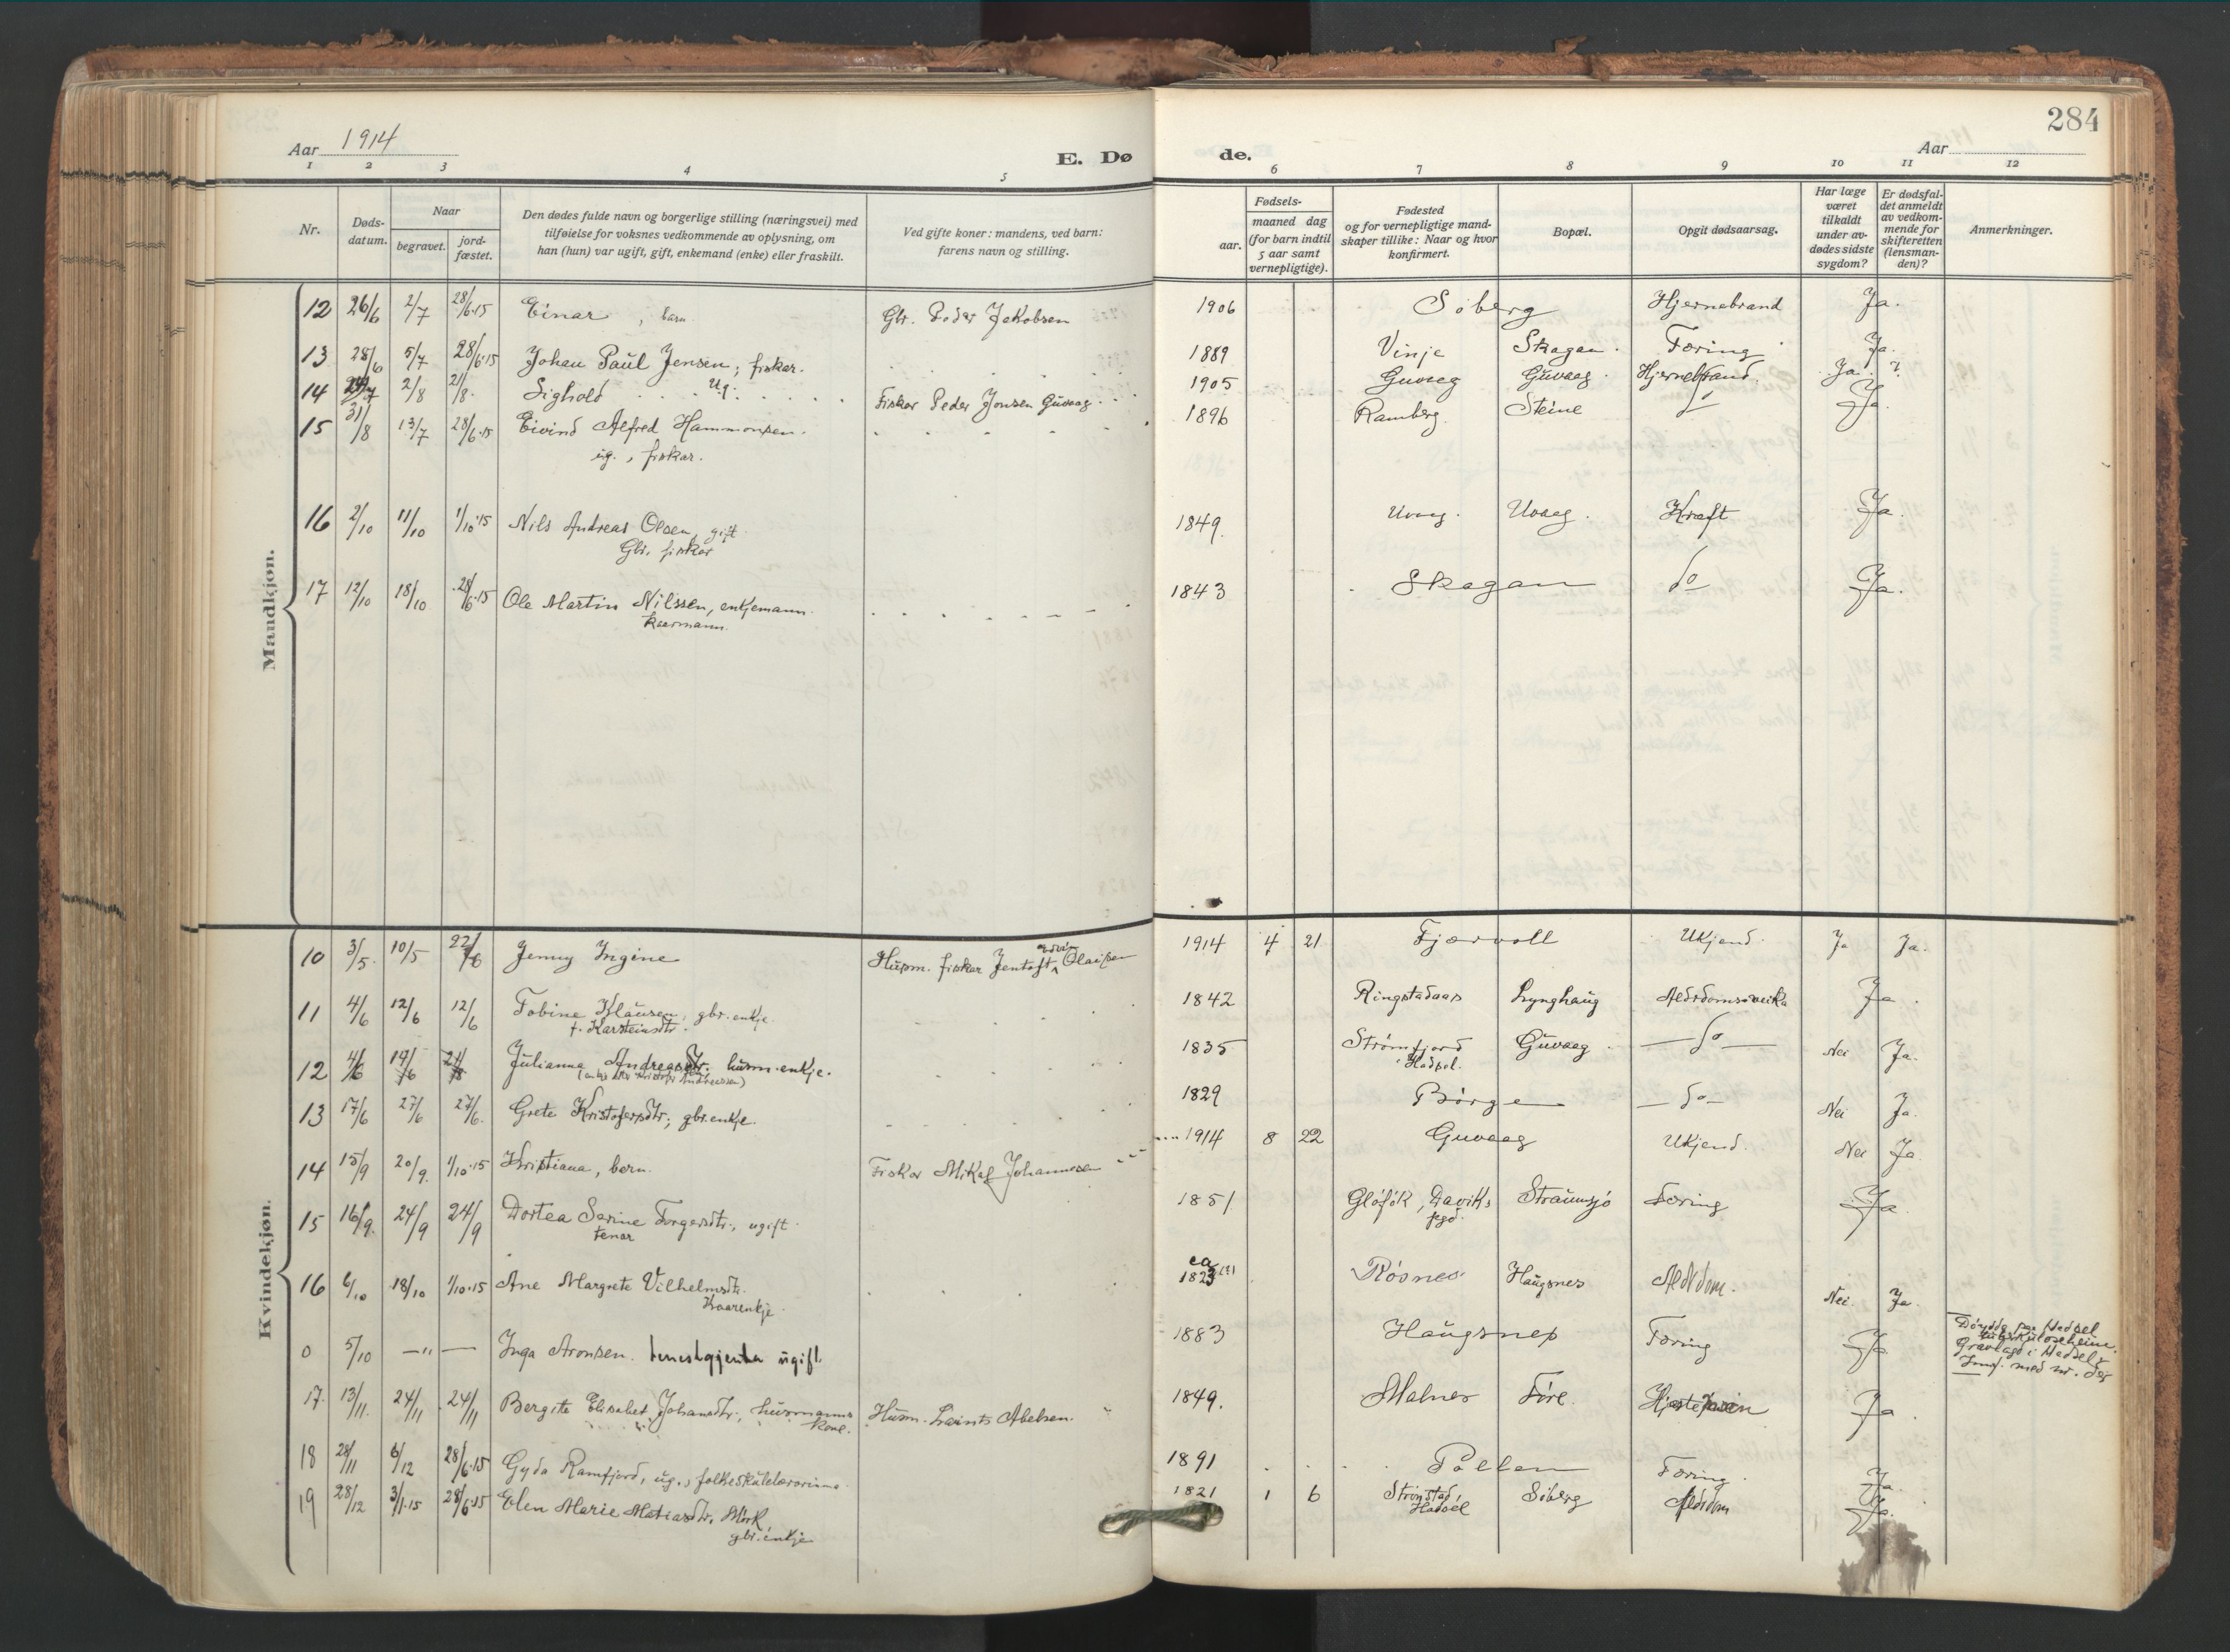 284
Aar 1914
E. Dø de.
Aar
1 2 3 4 5 6 7 8 9 10 11 12
Nr.
Døds-
datum.
Naar
begravet.
jord-
fæstet.
Den dødes fulde navn og borgerlige stilling (næringsvei) med
tilføielse for voksnes vedkommende av oplysning, om
han (hun) var ugift, gift, enkemand (enke) eller fraskilt.
Ved gifte koner: mandens, ved barn:
farens navn og stilling.
Fødsels-
aar.
maaned dag
(for barn indtil
5 aar samt
vernepligtige).
Fødested
og for vernepligtige mand-
skaper tillike: Naar og hvor
konfirmert.
Bopæl.
Opgit dødsaarsag.
Har læge
været
tilkaldt
under av-
dødes sidste
sygdom?
Er dødsfal-
det anmeldt
av vedkom-
mende for
skifteretten
(lensman-
den)?
Anmerkninger.
Mandkjøn.
12 26/6 2/7 28/6·15 Einar, barn Gbr. Peder Jakobsen 1906 Søberg Hjernebrand Ja.
13 28/6 5/7 28/6·15 Johan Paul Jensen; fiskar. 1889 Vinje Skagen. Tæring Ja.
14 2/8 2/8. Sighold Ug. Fisker Peder Jonsen Guvaag 1905 Guvaag Guvaag. Hjernebrand. Ja. ?
15 31/8 13/7 28/6·15 Eivind Alfred Hammonsen. 1896 Ramberg. Steine Ja.
ug., fiskar.
16 2/10 11/10 1/10·15 Nils Andreas Olsen, gift 1849. Uvaag. Uvaag. Kræft Ja.
Gbr. fiskar
17 12/10 18/10 28/6·15 Ole Martin Nilssen, enkjemann. 1843 Skagan do Ja.
kaarmann.
Kvindekjøn.
10 3/5. 10/5 22/6 Jenny Ingine Husm. fisker Jentoft Edvin Olaisen 1914 4 21 Fjærvoll Ukjend. Ja Ja.
11 4/6 12/6 12/6 Tobine Klausen, gbr. enkje. 1842 Ringstadaas Lynghaug Aldrdomsveika Ja.
f. Karsteinsdtr.
12 4/6 19/6 Julianna Andreasdtr. husm. enkje. 1835 Strømfjord Guvaag. — do — Nei Ja.
i Hadsel.
13 17/6 27/6 27/6. Grete Kristofersdtr; gbr. enkje. 1829 Børge — do — Nei Ja.
14 15/9 20/9. 1/10·15 Kristiana, barn. Fiskar Mikal Johannesen 1914 8 22 Guvaag Ukjend. Nei Ja.
15 16/9. 24/9 24/9 Dortea Serine Torgersdtr., ugift. 1851 Straumsjø Tæring Ja
tenar
16 6/10 18/10 1/10·15 Ane Margrete Vilhelmsdtr. ca 1823 (?) Røsnes Haugsnes Aldrdom. Nei. Ja.
Kaarenkje.
0 5/10 —"— Inga Aronsen. tenestgjenta ugift. 1883 Haugsnes Tæring Ja
Døydde paa Hadsel
tuberkuloseheim.
Gravlagd i Hadsel
Innf. med nr. der
17. 13/11. 24/11 24/11 Bergite Elisabet Johansdtr., husmanns Husm. Laurits Abelsen. 1849. Malnes Føre. Ja.
kone.
18 28/11 6/12 28/6·15 Gyda Ramfjord, ug., folkeskulelærarinne 1891 Pollen Tæring. Ja
19 28/12 3/1·15 28/6·15 Elen Marie Matiasdtr. Mørk 1821 1 6 Søberg Aldrdom Ja.
gbr. enkje Hadsel